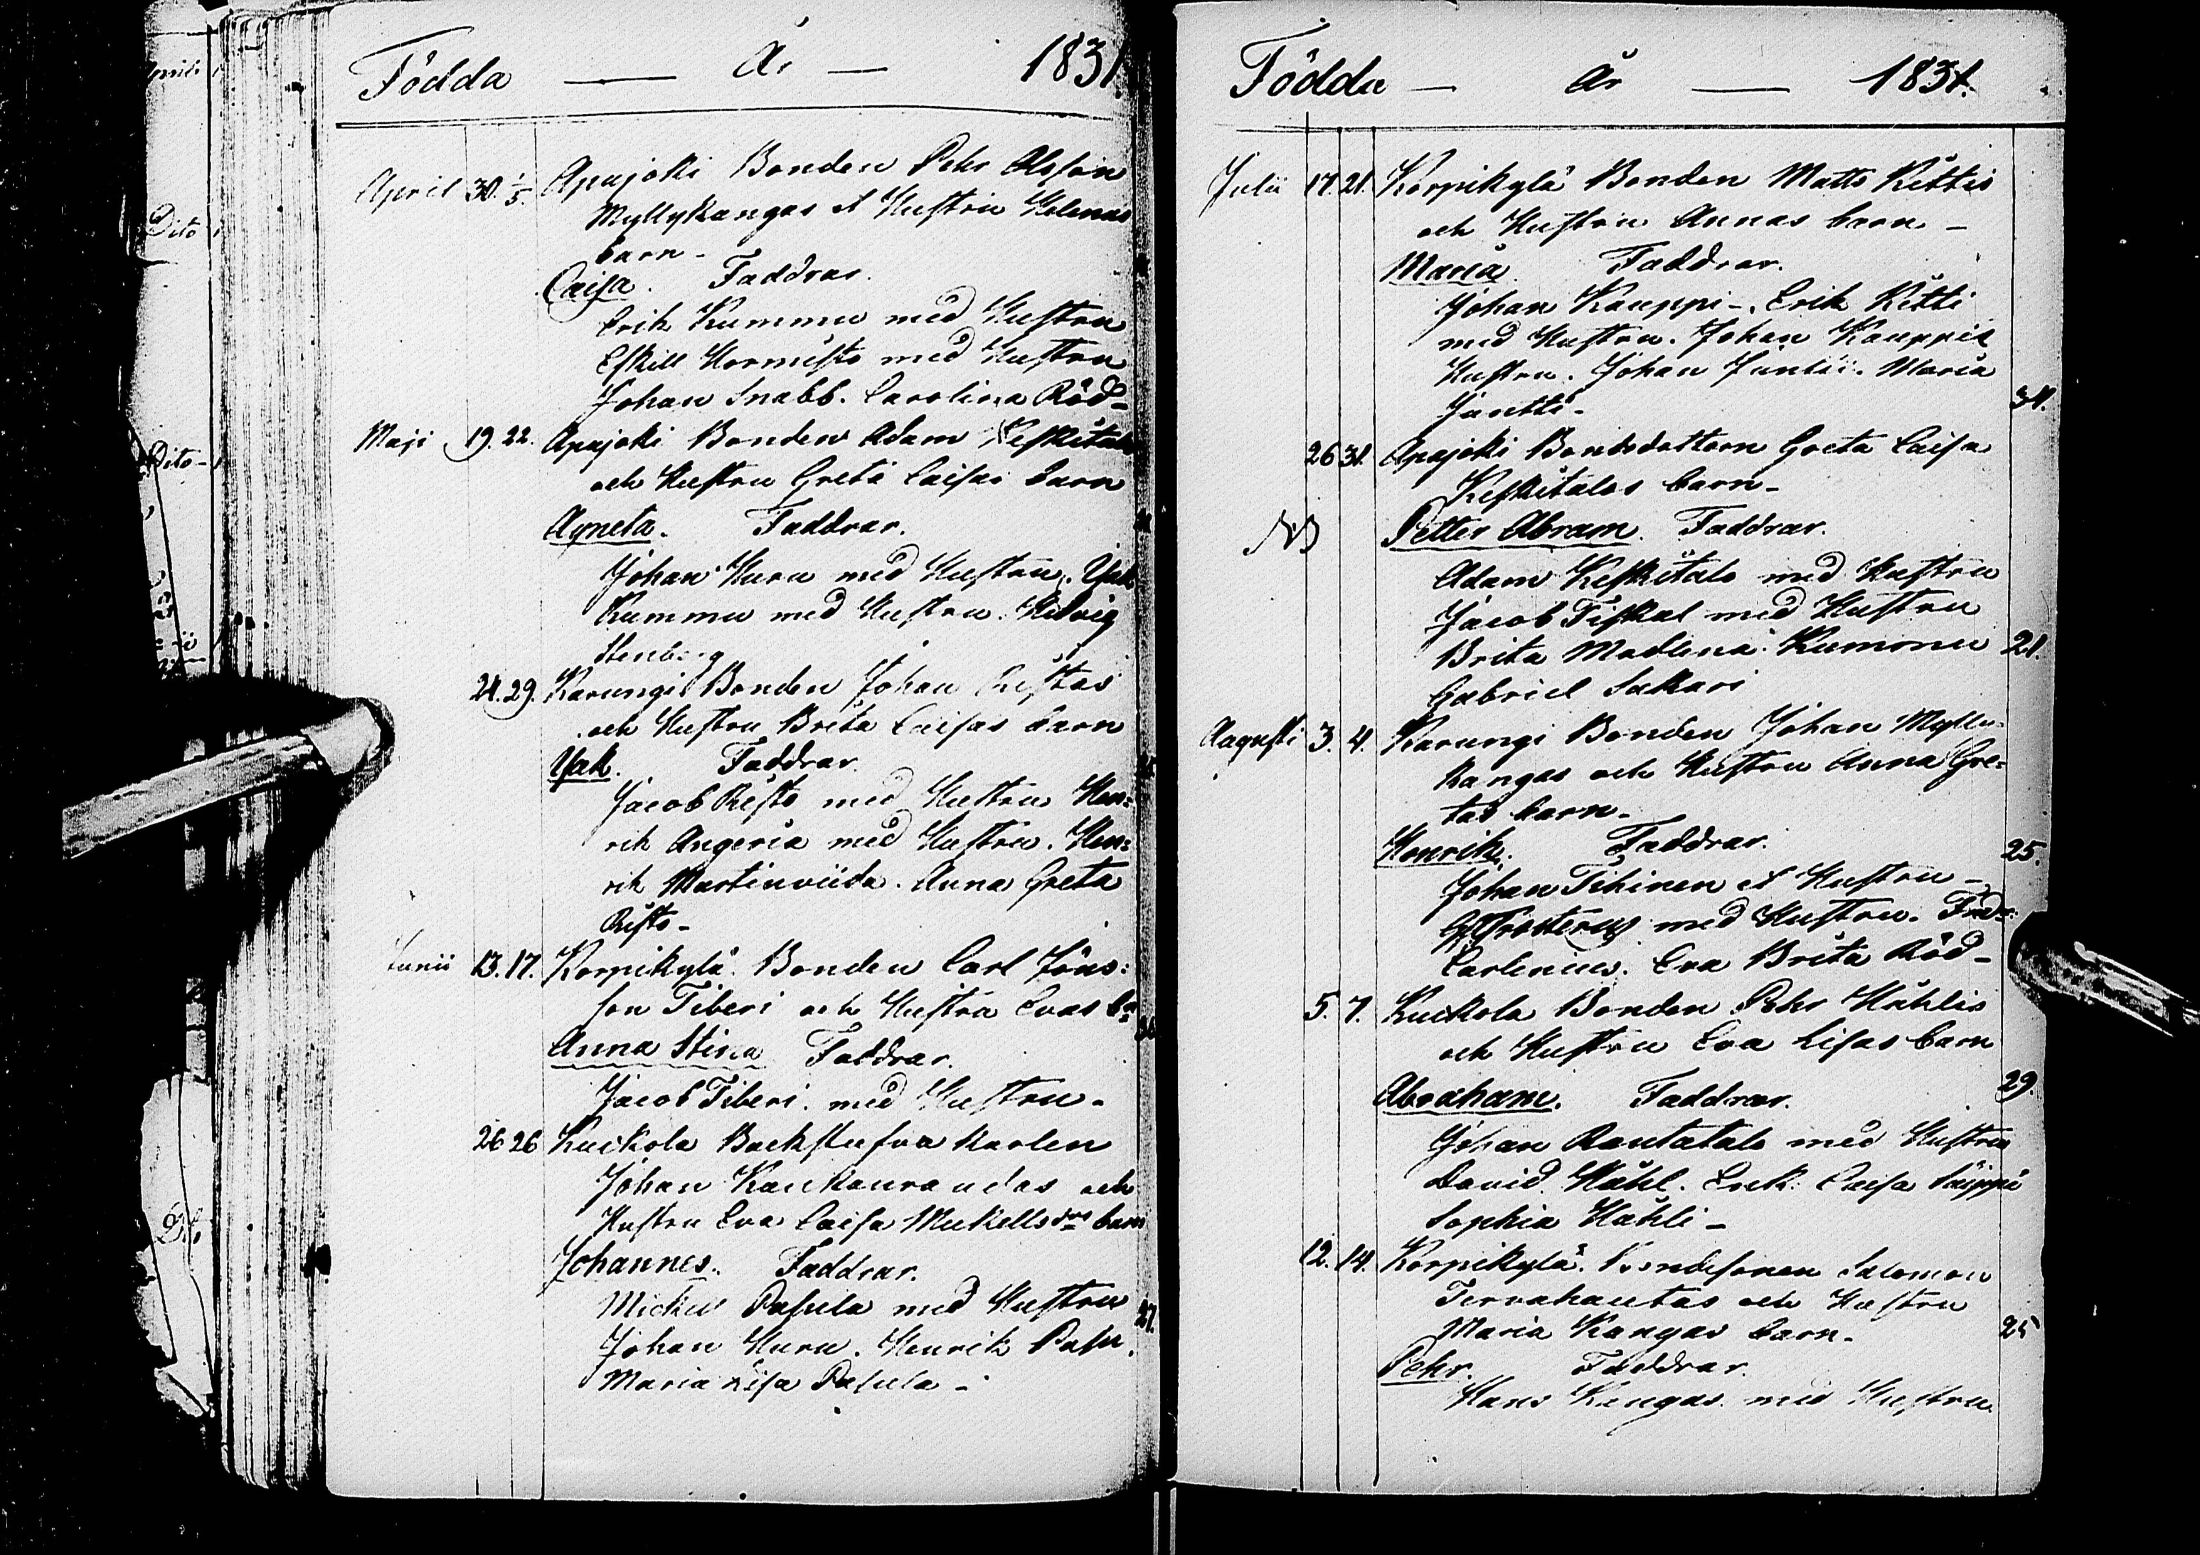 Födda — År — 1831.
April 30. 1/5. Apajoki Bonden Pehr Olsson
Myllykangas et Hustru Helenas
barn -
Caisa. Faddrar.
Erik Kummu med Hustru
Eskill Hormisto med Hustru
Johan Snabb. Carolina Röd-
Maji 19. 22. Apajoki Bonden Adam Keskitalo
och Hustru Greta Caisas barn
Agneta. Faddrar.
Johan Huru med Hustru. Isak
Kummu med Hustru. Hedvig
Stenberg
24. 29. Karungi Bonden Johan Ristos
och Hustru Brita Caisas barn
Isak. Faddrar.
Jacob Risto med Hustru Hen=
rik Angeria med Hustru. Hen=
rik Martinviida. Anna Greta
Risto -
Junii 13. 17. Korpikylä. Bonden Carl Jöns=
son Tiberi och Hustru Evas bn
Anna Stina Faddrar.
Jacob Tiberi. med Hustru -
26 26 Kuckola Backstufva karlen
Johan Kaukouraudas och
Hustru Eva Caisa Mickellsdrs barn
Johannes. Faddrar.
Mickel Pasula med Hustru
Johan Huru. Henrik Pasu.
Maria Lisa Pasula -
Födda — År — 1831.
Julii 17. 21. Korpikylä Bonden Matts Kittis
och Hustru Annas barn -
Maria Faddrar.
Johan Kauppi -. Erik Kitti
med Hustru. Johan Kauppis
Hustru. Johan Juntti. Maria
Juntti -
31.
26 31. Apajoki Bondedottern Greta Caisa
Keskitalos barn -
NB Petter Abram. Faddrar.
Adam Keskitalo med Hustru
Jacob Fiskal med Hustru
Brita Madlena Kummu 21.
Gabriel Sakari
Augusti 3. 4. Karungi Bonden Johan Mylly
kangas och Hustru Anna Gre=
tas barn -
Henrik. Faddrar. 25.
Johan Tihinen et Hustru -
Frosterus med Hustru. Fredr:
Carlenius. Eva Brita Röd -
5. 7. Kuckola Bonden Pehr Hählis
och Hustru Eva Lisas barn
29.
Abraham. Faddrar.
Johan Rautatalo med Hustru
David Hähl. Erik. Caisa
Sophia Hähli -
12. 14. Korpikylä. Bondesonen Salomon
Tervahautas och Hustru
Maria Kangas barn - 25
Pehr. Faddrar.
Hans Kangas med Hustru